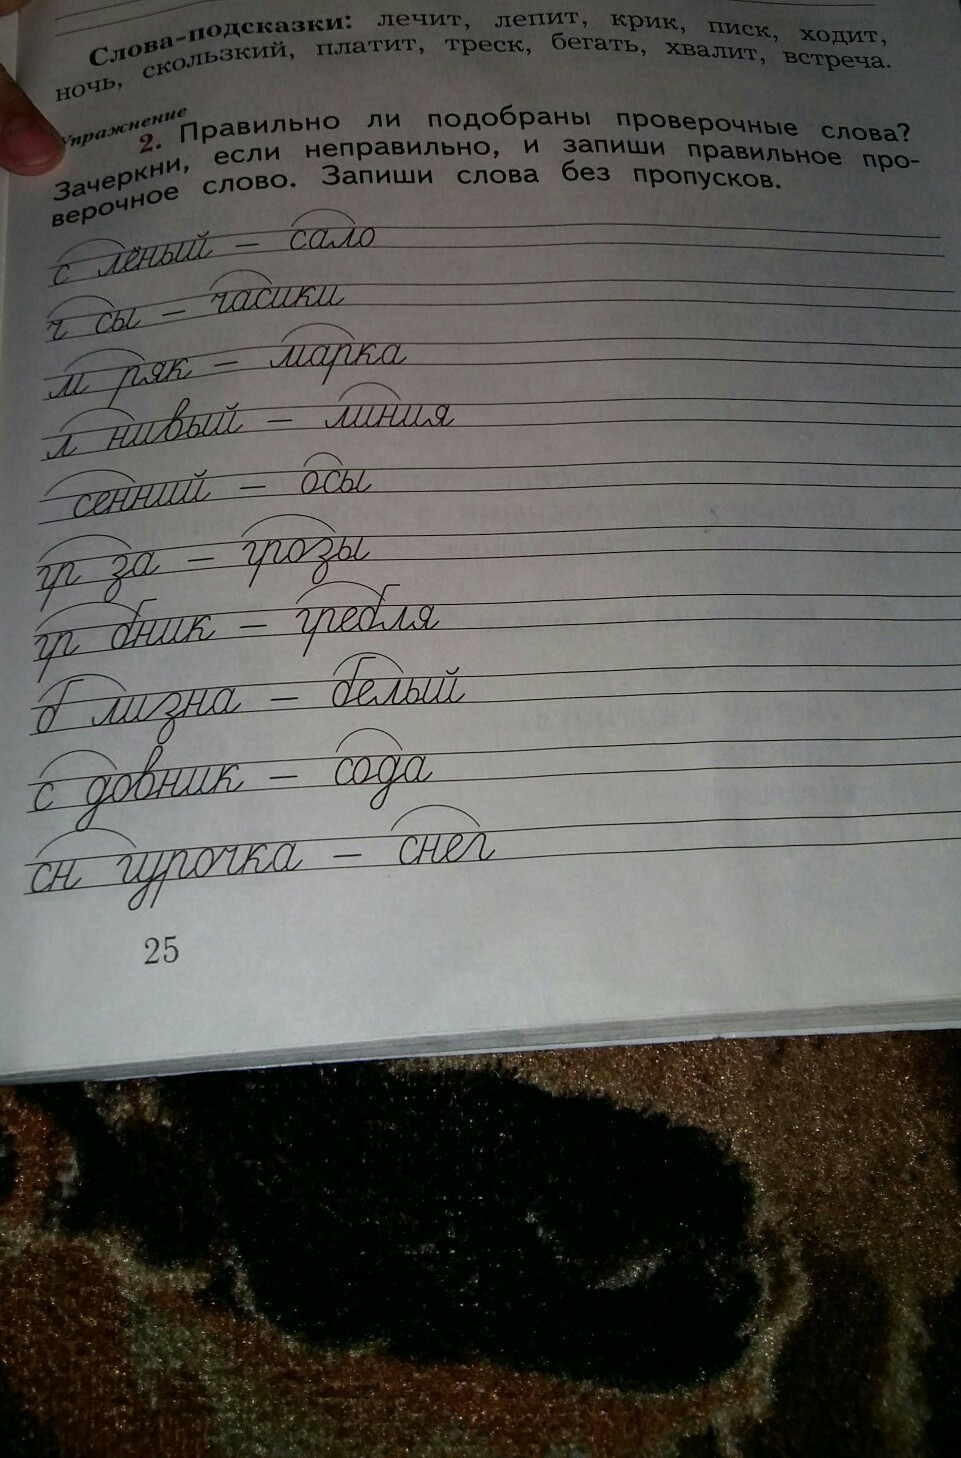 Слова-подсказки: лечит, лепит, крик, писк, ходит,
ночь, скользкий, платит, треск, бегать, хвалит, встреча.
Упражнение
2. Правильно ли подобраны проверочные слова?
Зачеркни, если неправильно, и запиши правильное про-
верочное слово. Запиши слова без пропусков.
с лёный – сало
ч сы – часики
м ряк – марка
л нивый – линия
сенний – осы
гр за – грозы
гр бник – гребля
б лизна – белый
с довник – сода
сн гурочка – снег
25